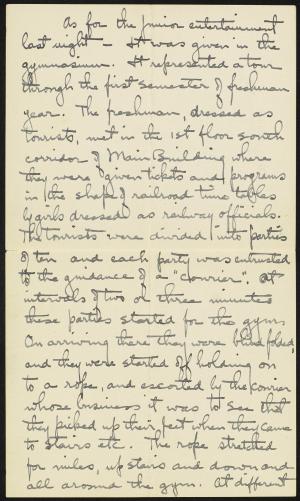 As for the junior entertainment
last night - It was given in the
gymnasium. It represented a tour
through the first semester of freshman
year. The freshman, dressed as
tourists, met in the 1st floor south
corridor of Main Building where
they were given tickets and programs
in the shape of railroad time tables
by girls dressed as railway officials.
The tourists were divided into parties
of ten and each party was entrusted
to the guidance of a "courier". At
intervals of two or three minutes
these parties started for the gym.
On arriving there they were blindfolded,
and they were started off holding on
to a rope, and escorted by the courier
whose business it was to see that
they picked up their feet when they came
to stairs etc. The rope stretched
for miles, up stairs and down and
all around the gym. At different